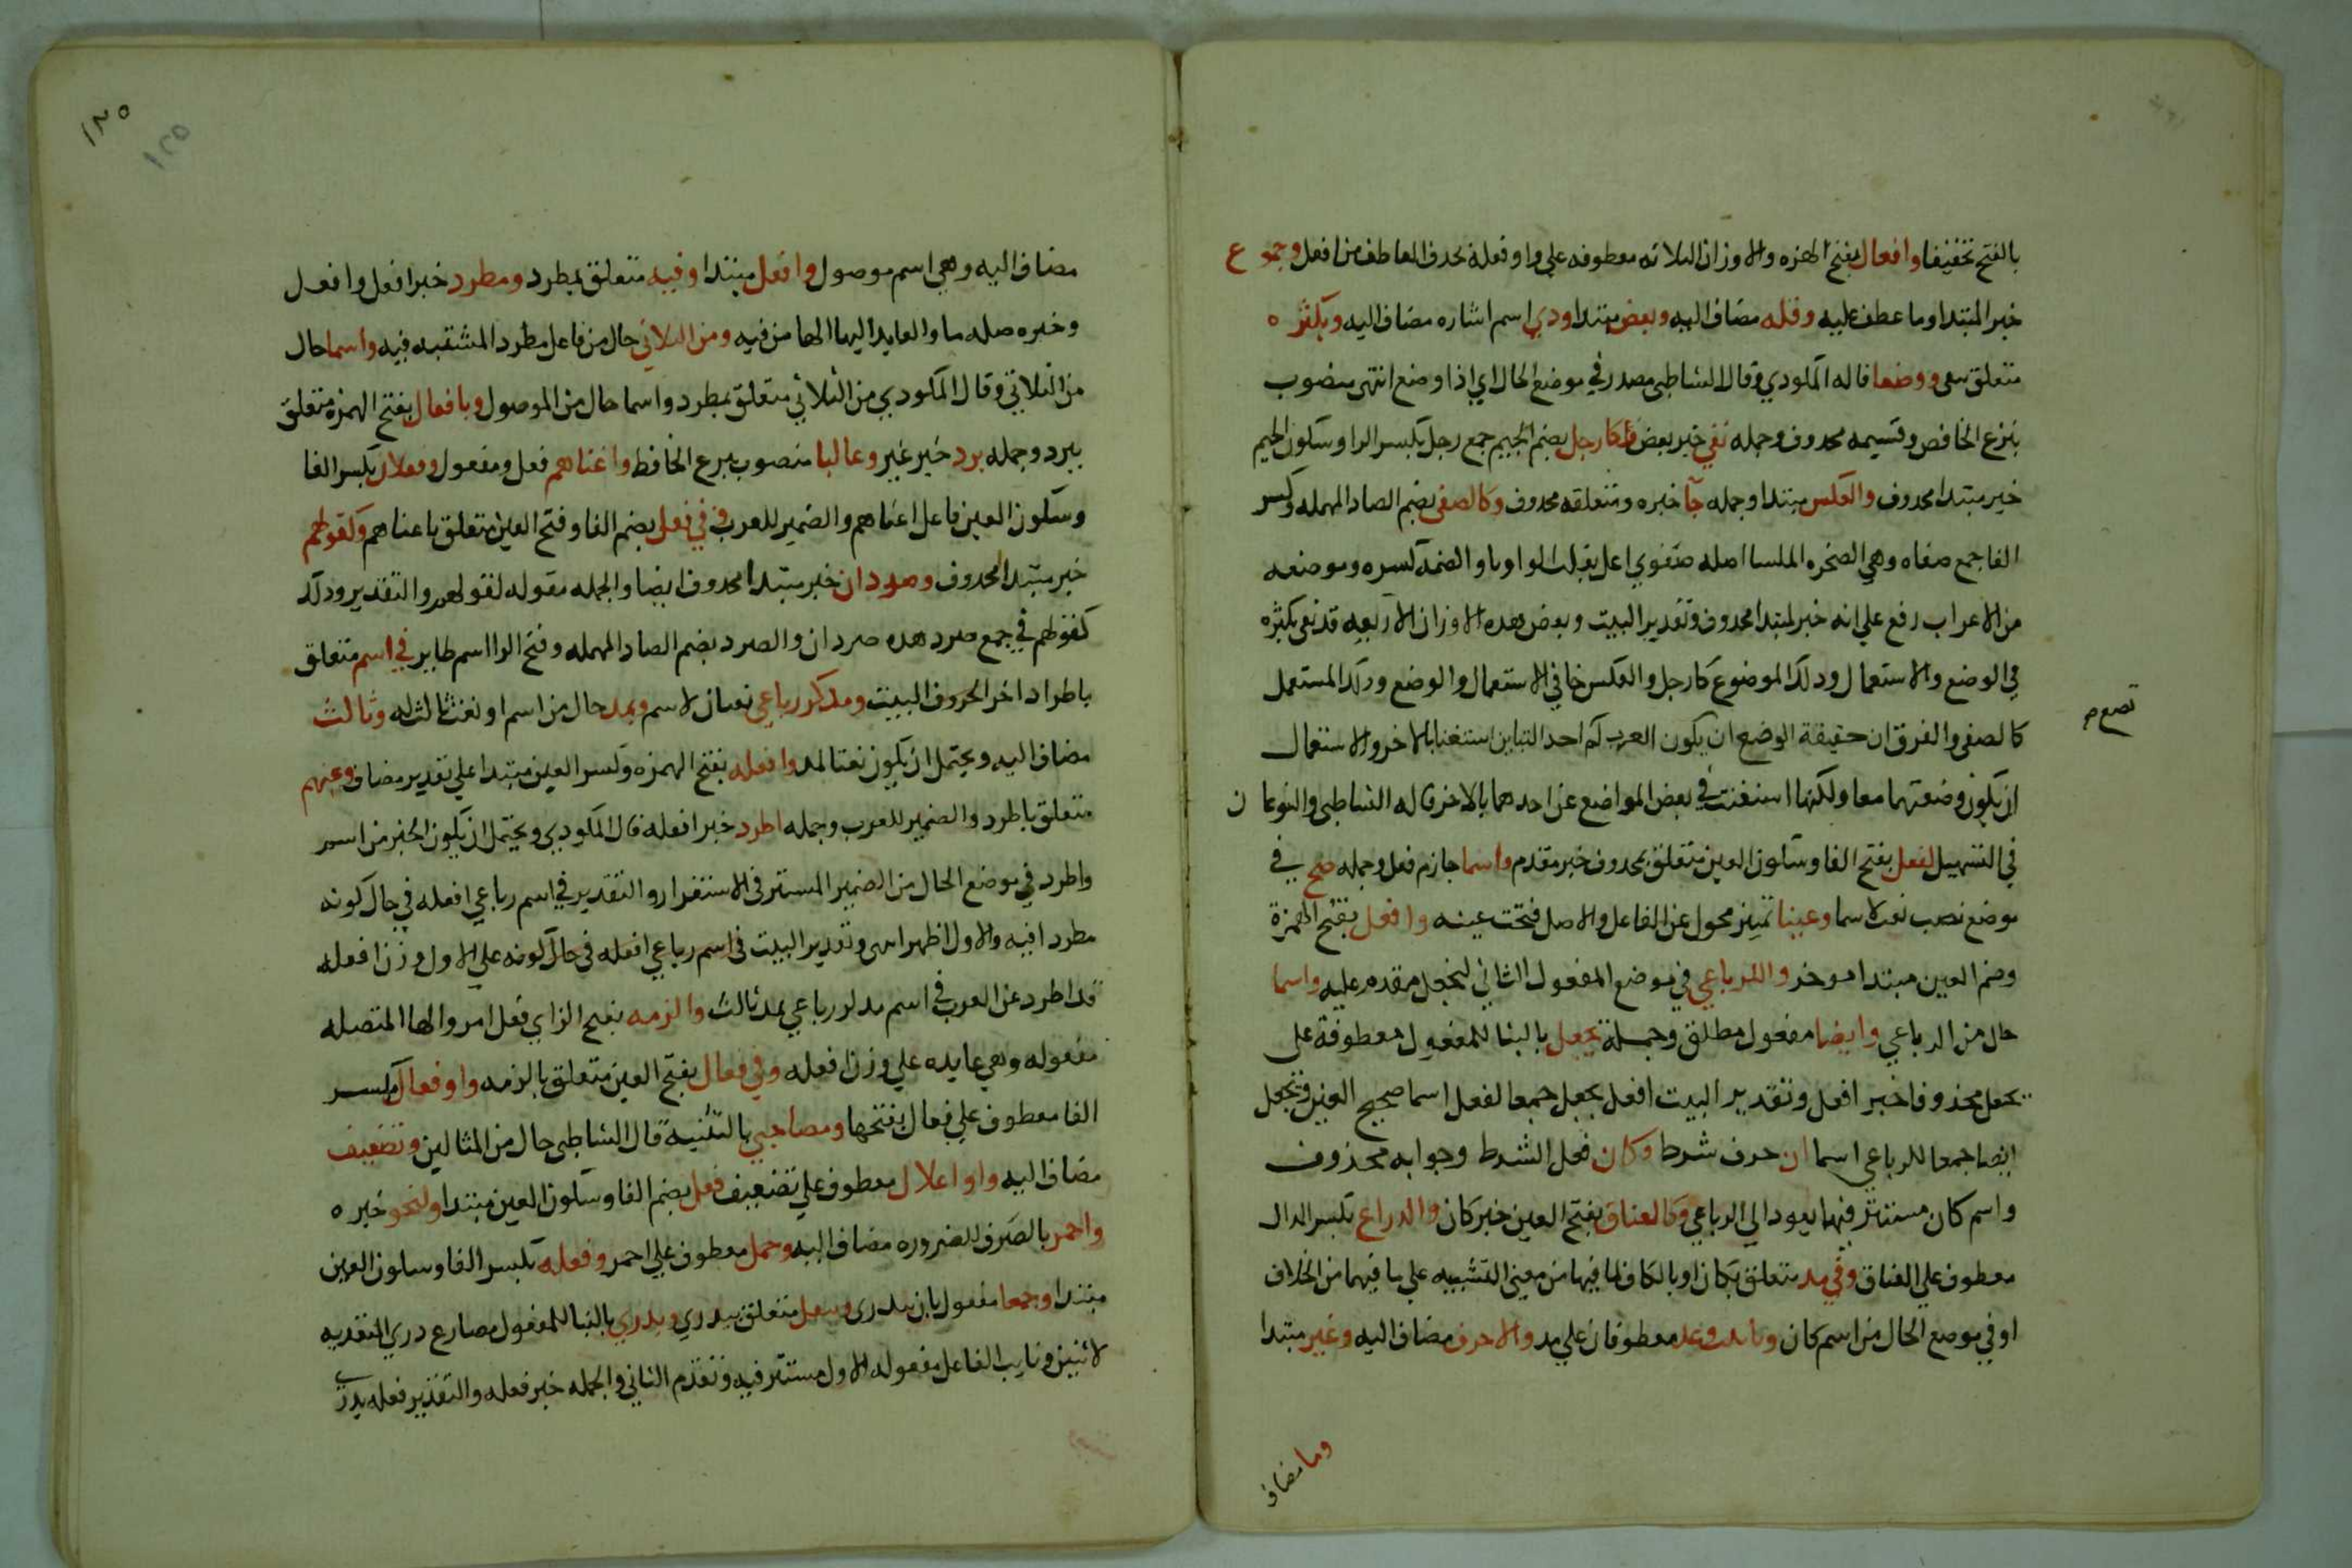 بالفتح تخفيفا وافعال بفتح الهمزه والاوزان الثلاثه معطوفه علي واو فعلة بحذف العاطف من افعل وجموع
خبر المبتدا وما عطف عليه وقله مضاف اليه وبعض مبتدا وذي اسم اشاره مضاف اليه وبكثره
متعلق بيفي ووضعا قاله المكودي وقال الشاطبي مصدر في موضع الحال اي اذا وضع انتهى منصوب
بنزع الخافض وقسيمه محذوف وجمله يفي خبر بعض كارجل بضم الجيم جمع رجل بكسر الرا وسكون الجيم
خبر مبتدا محذوف والعكس مبتدا وجمله جآ خبره ومتعلقه محذوف وكالصفي بضم الصاد المهمله وكسر
الفا جمع صفاه وهي الصخره الملسا اصله صفوي اعل بقلب الواو يا والضمة كسره وموضعه
من الاعراب رفع علي انه خبر لمبتدا محذوف وتقدير البيت وبعض هذه الاوزان الاربعه قد يفي بكثره
في الوضع والاستعمال وذلك الموضوع كارجل والعكس جا في الاستعمال والوضع وذلك المستعمل
كالصفي والفرق ان حقيقة الوضع ان يكون العرب لم احد البناين استغنا بالاخر والاستعمال
تضع م
ان يكون وضعتهما معا ولكنها استغنت في بعض المواضع عن احدهما بالاخر قاله الشاطبي والنوعان
في التسهيل لفعل بفتح الفا وسكون العين متعلق بمحذوف خبر مقدم واسما جازم فعل وجمله صح في
موضع نصب نعت لاسما وعينا تمييز محول عن الفاعل والاصل فتحت عينه وافعل بفتح الهمزة
وضم العين مبتدا موخر والرباعي في موضع المفعول الثاني ليجعل مقدم عليه واسما
حال من الرباعي وايضا مفعول مطلق وجملة يجعل بالبنا للمفعول معطوفة على
يجعل محذوفا خبر افعل وتقدير البيت افعل يجعل جمعا لفعل اسما صحيح العين ويجعل
ايضا جمعا للرباعي اسما ان حرف شرط وكان فعل الشرط وجوابه محذوف
واسم كان مستتر فيها يعود الي الرباعي وكالعناق بفتح العين خبر كان والذراع بكسر الذال
معطوف علي العناق وفي مد متعلق بكان او بالكاف لما فيها من معني التشبيه علي ما فيهما من الخلاف
او في موضع الحال من اسم كان وتانيث وعد معطوفان علي مد والاحرف مضاف اليه وغير مبتدا
وما مضاف
١٢٥
١٢٥
مضاف اليه وهي اسم موصول وافعل مبتدا وفيه متعلق بمطرد ومطرد خبر افعل وافعل
وخبره صله ما والعايد اليها الها من فيه ومن الثلاثي حال من فاعل مطرد المستتر فيه واسما حال
من الثلاثي وقال المكودي من الثلاثي متعلق بمطرد واسما حال من الموصول وبافعال بفتح الهمزه متعلق
بيرد وجمله يرد خبر غير وغالبا منصوب بنزع الخافظ واغناهم فعل ومفعول وفعلان بكسر الفا
وسكون العين فاعل اغناهم والضمير للعرب في فعل بضم الفا وفتح العين متعلق باغناهم وكقولهم
خبر مبتدا محذوف وصردان خبر مبتدا محذوف ايضا والجمله مقوله لقولهم والتقدير وذلك
كقولهم في جمع صرد هذه صردان والصرد بضم الصاد المهمله وفتح الرا اسم طاير في اسم متعلق
باطراد اخر الحروف البيت ومذكر رباعي نعتان لاسم وبمد حال من اسم او نعت ثالث له وثالث
مضاف اليه ويحتمل ان يكون نعتا لمد وافعله بفتح الهمزه وكسر العين مبتدا علي تقدير مضاف وعنهم
متعلق باطرد والضمير للعرب وجمله اطرد خبر افعله قال المكودي ويحتمل ان يكون الخبر من اسم
واطرد في موضع الحال من الضمير المستتر في الاستقرار والتقدير في اسم رباعي افعله في حال كونه
مطردا فيه والاول اظهر انتهى وتقدير البيت في اسم رباعي افعله في حال كونه علي الاول وزن افعله
قد اطرد عن العرب في اسم مذكر رباعي بمد ثالث والزمه بفتح الزاي فعل امر والها المتصله
مفعوله وهي عايده علي وزن افعله وفي فعال بفتح العين متعلق بالزمه واو فعال بكسر
الفا معطوف علي فعال بفتحها ومصاحبي بالتثنيه قال الشاطبي حال من المثالين وتضعيف
مضاف اليه واو اعلال معطوف علي تضعيف فعل بضم الفا وسكون العين مبتدا ولنحو خبره
واحمر بالصرف للضروره مضاف اليه وحمل معطوف علي احمر وفعله بكسر الفا وسكون العين
مبتدا وجمعا مفعول ثان بيدرى وبنقل متعلق بيدري ويدري بالبنا للمفعول مضارع دري المتعديه
لاثنين ونايب الفاعل مفعوله الاول مستتر فيه وتقدم الثاني والجمله خبر فعله والتقدير فعله يدري